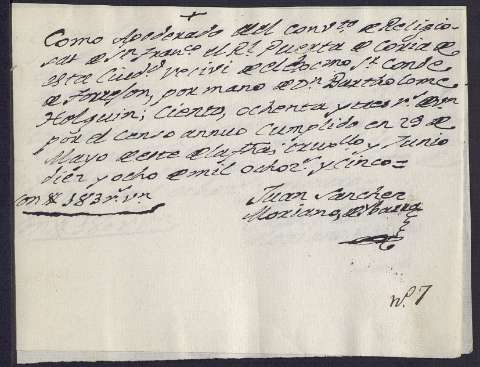 Como Apoderado del conv.to de Religio-
sas de S.n Fran.co el R.l Puerta de Coria de
esta Ciud.d recivi de el Excmo S.r Conde
de Torrejon, por mano de D.n Bartholome
Holguin; Ciento, ochenta y tres r.s de vn
por el censo annuo Cumplido en 29 de
Mayo de este de la fha; Truxillo y Junio
diez y ocho de mil ochoz.s y cinco=
Son 183 rs vn
Juan Sanchez
Moriano de Ibarra
n.o 7